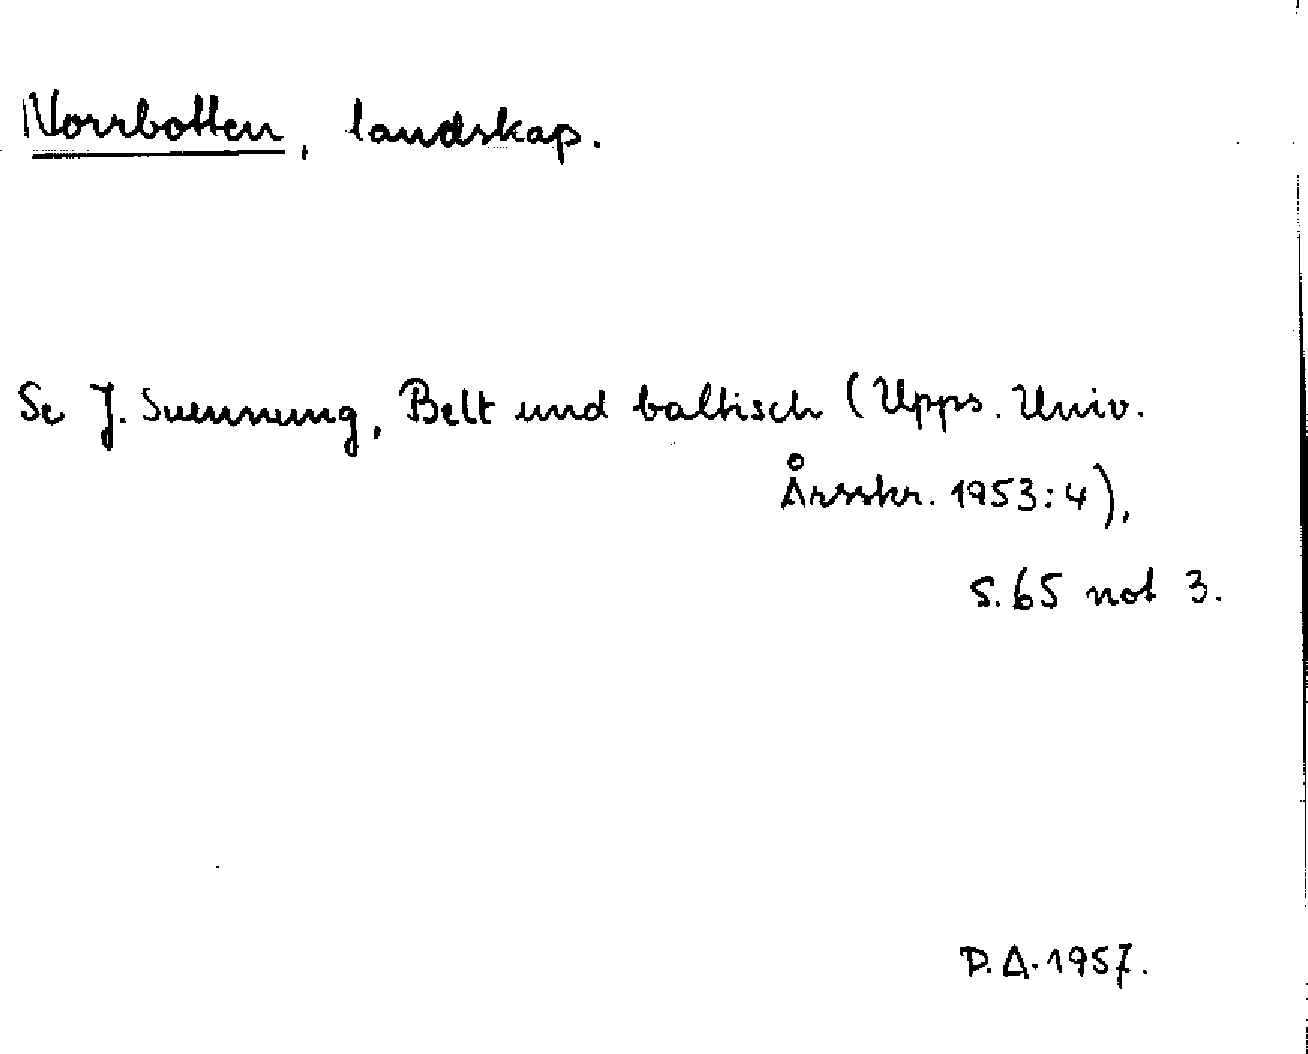 Norrbotten, landskap.
Se J. Svennung, Belt und baltisch (Upps. Univ.
Årsskr. 1953:4),
S. 65 not 3.
D.A. 1957.